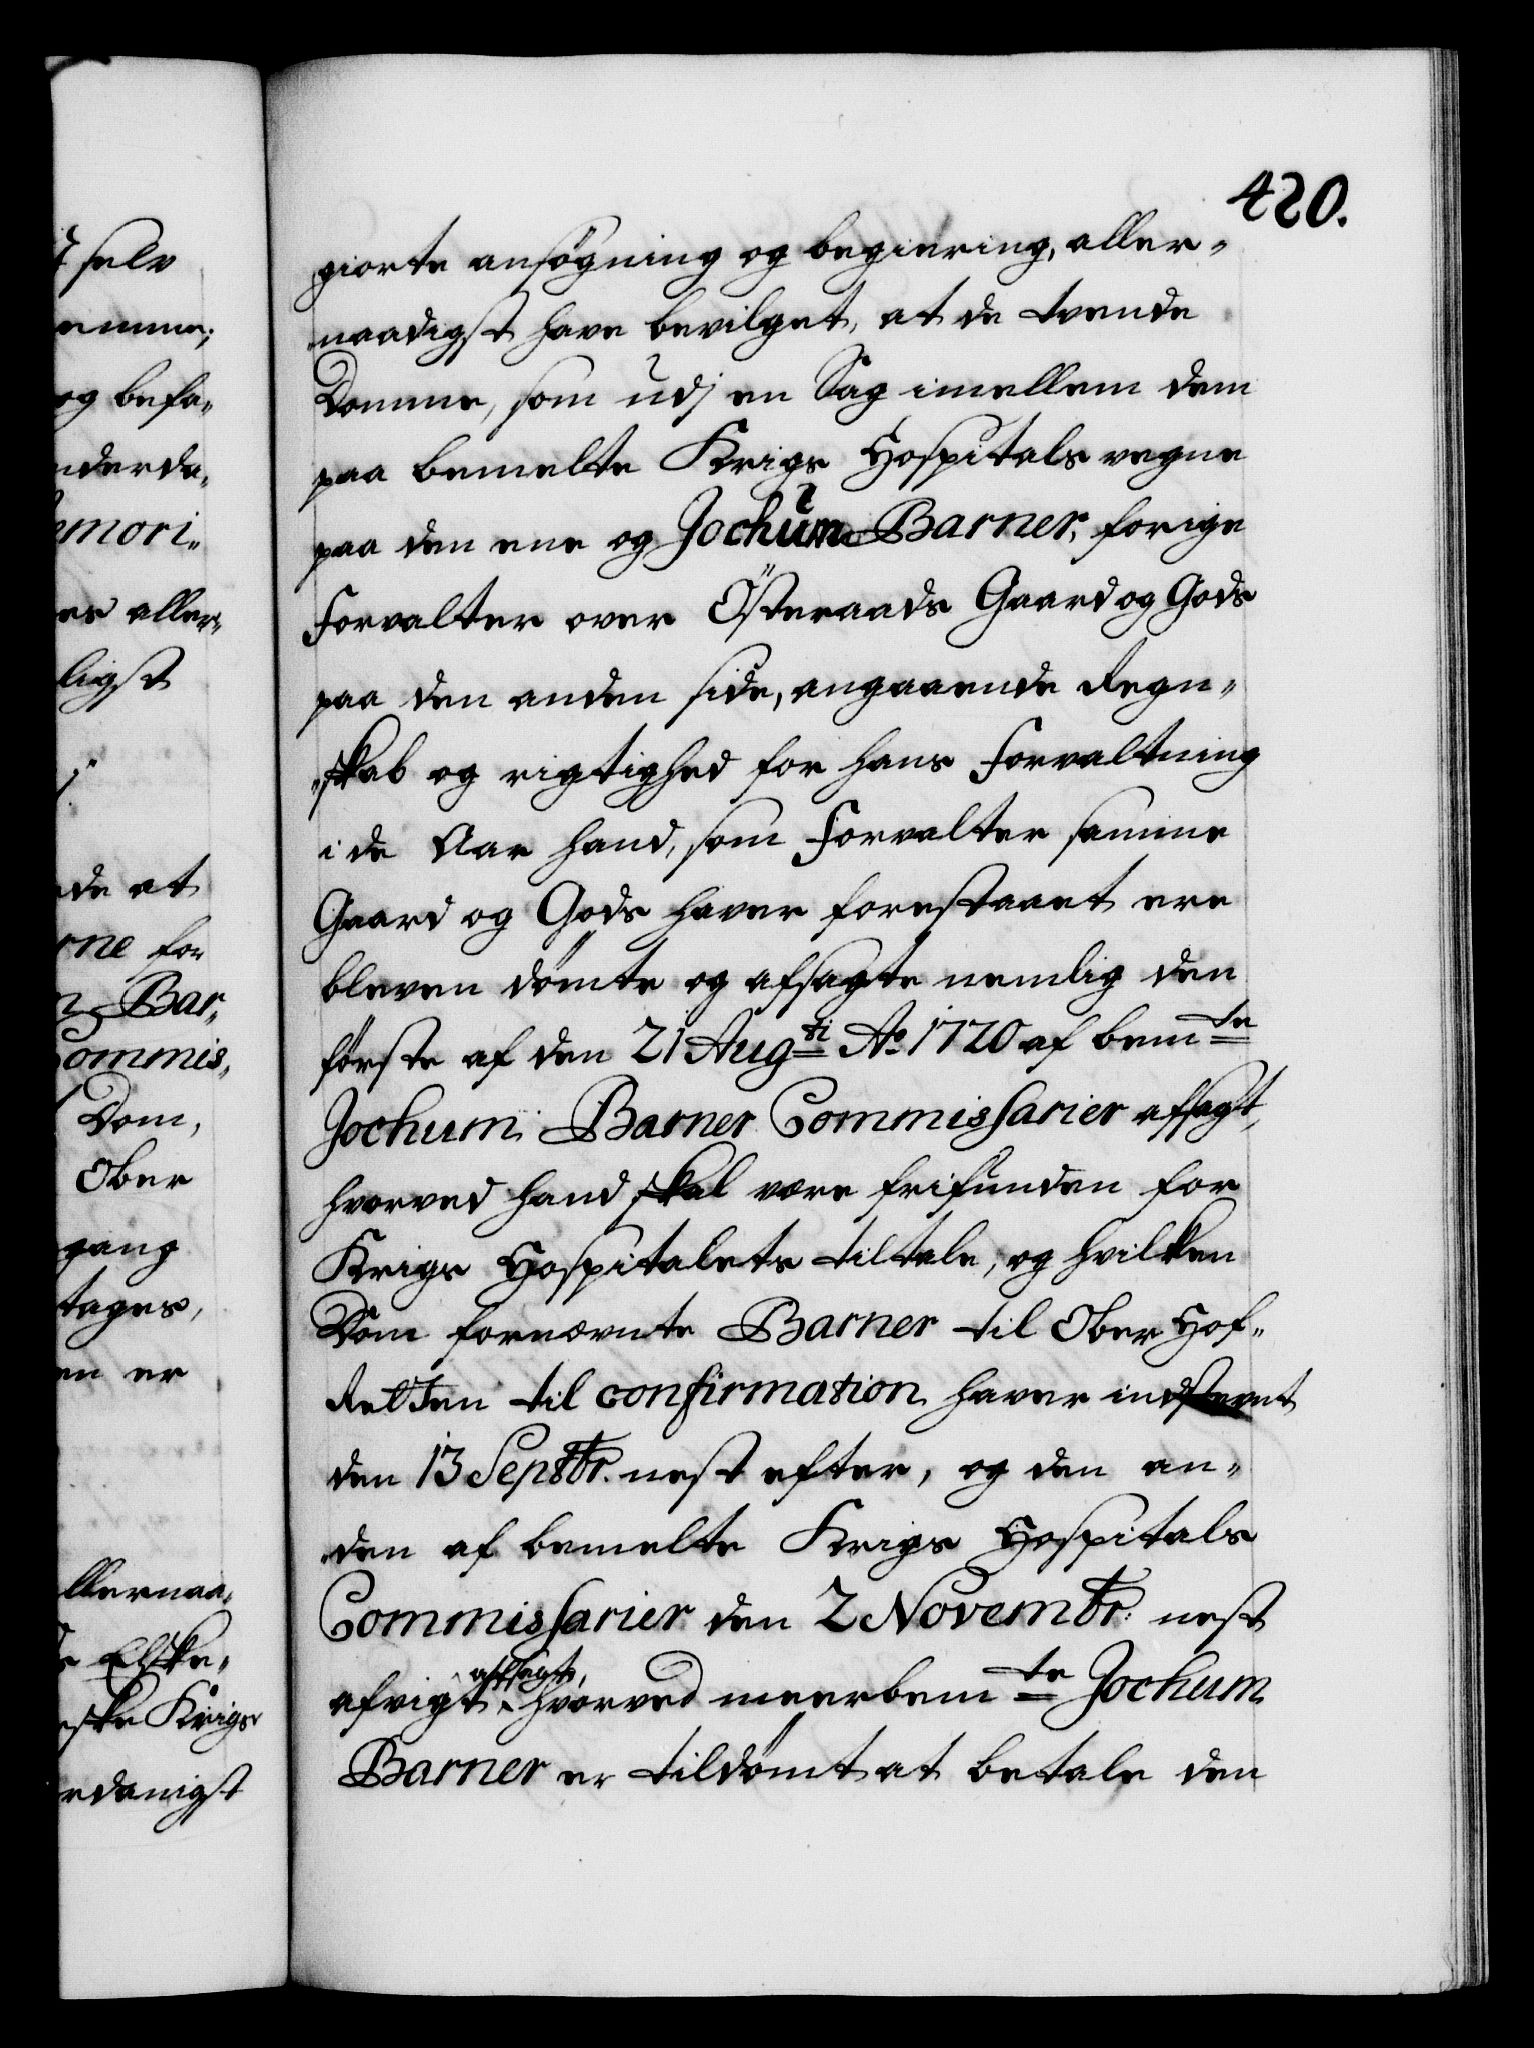 420.
giorte ansögning og begiering, aller-
naadigst have bevilget, at de tvende
Domme, som udj en Sag imellem dem
paa bemelte Krigs Hospitals vegne
paa den ene og Jochum Barner, forige
Forvalter over Österaads Gaard og Gods
paa den anden side, angaaende Regn-
skab og rigtighed for hans Forvaltning
i de Aar hand, som Forvalter samme
Gaard og Gods haver forestaaet ere
bleven dömte og afsagte nemlig den
förste af den 21 Aug:ti Ao. 1720 af bem:te
Jochum Barner Commissarier afsagt,
hvorved hand skal være frifunden for
Krigs Hospitalets tiltale, og hvilken
Dom fornævnte Barner til Ober Hof-
Retten til confirmation haver indstevnt
den 13 Septbr. nest efter, og den an-
den af bemelte Krigs Hospitals
Commissarier den 2 Novembr: nest
afvigt afsagt, hvorved meerbem:te Jochum
Barner er tildömt at betale den
t selv
emme;
og befa-
nderda-
emori-
es aller-
ligst
de at
rne for
Bar-
Commis-
Dom,
Ober
gang
tages,
en er
llernaa-
Elske-
eske Krigs
rdanigst